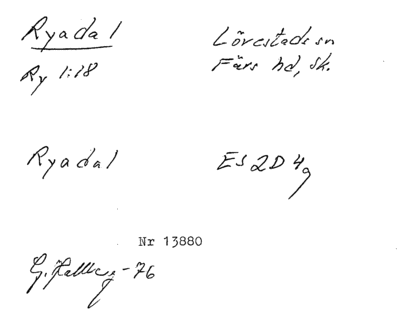 Ryadal
Lövestads sn
Ry 1:18
Färs hd, sk.
Ryadal
ES 2D 4g
Nr 13880
G. Hallberg -76